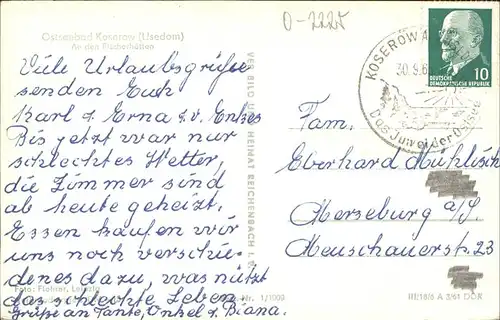 O-2225
Ostseebad Koserow (Usedom)
An den Fischerhütten
Viele Urlaubsgrüße
senden Euch
Karl & Erna u.
Bis jetzt war nur
schlechtes Wetter,
die Zimmer sind
ab heute geheizt.
Essen kaufen wir
uns noch verschie-
denes dazu, was nützt
das schlechte Leben.
Grüße an Tante, Onkel & Diana.
Foto:
Nr. 1/1009
VEB BILD UND HEIMAT REICHENBACH I. V.
KOSEROW
30.9.6
Das Juwel der Ostsee
DEUTSCHE
DEMOKRATISCHE REPUBLIK
10
Fam.
Eberhard Mühlisch
Merseburg a/S.
Meuschauerstr. 23
III/18/6 A 3/61 DDR